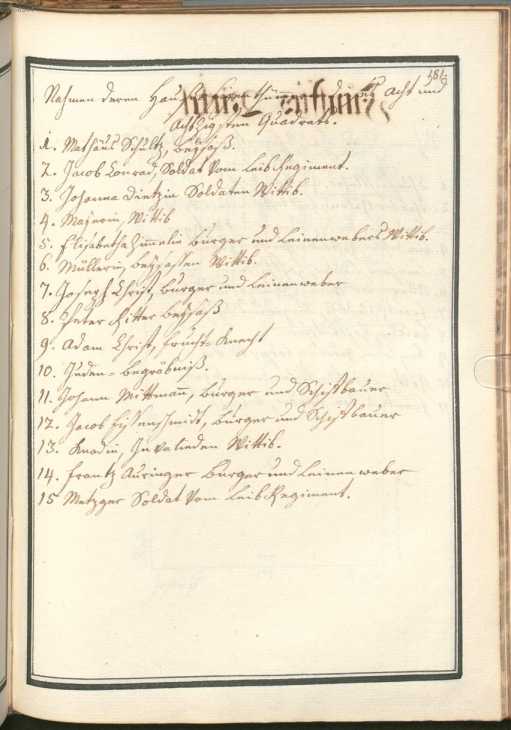 181.
Nahmen deren Hauß Eigenthümmer des Acht und
Achtzigsten Quadrats.
1. Mathäus Schultz, beysäß.
2. Jacob Conrad, Soldat vom LeibRegiment.
3. Johanna Dietzin Soldaten Wittib.
4. Mayerin, Wittib
5. Elisabetha Zimmelin burger und Leinenwebers Wittib.
6. Müllerin, beysassen Wittib.
7. Joseph Christ, burger und Leinenweber
8. Peter Ritter beysäß
9. Adam Christ, frücht-Knecht
10. Juden-begräbniß.
11. Johann Mittmann, burger und Schifbauer
12. Jacob Eyssenschmidt, burger und Schifbauer
13. Knodin, Invaliden Wittib.
14. Frantz Auringer burger und Leinenweber
15 Metzger Soldat vom LeibRegiment.